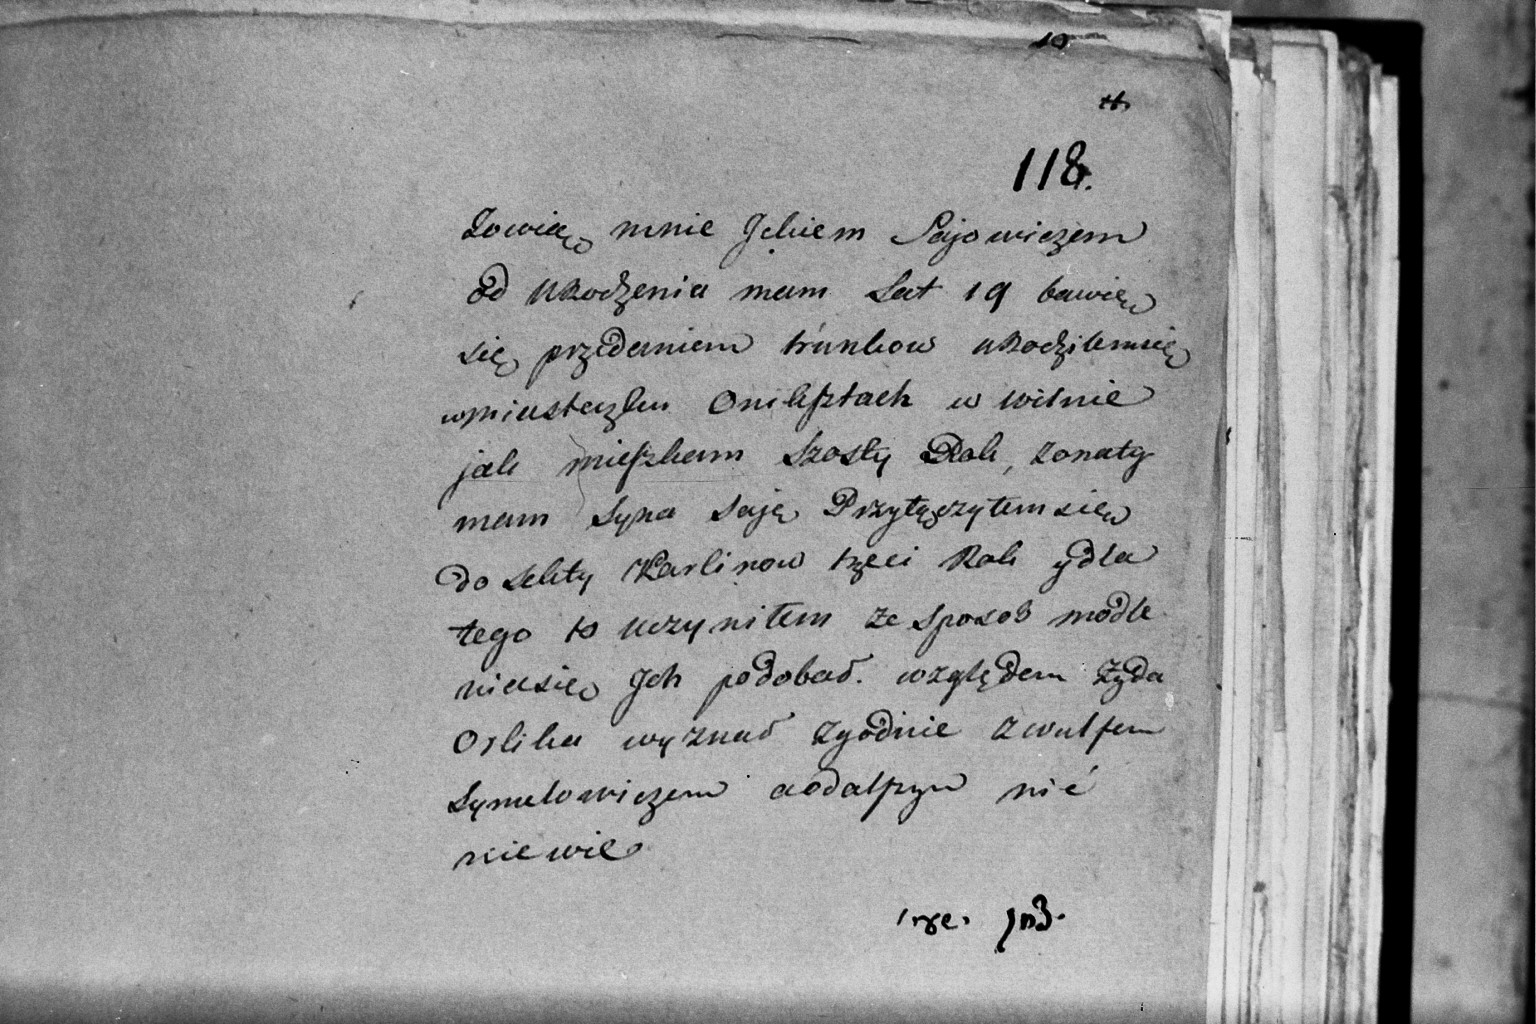 10
118.
Zowią mnie Ickiem Sajowiczem
od Urodzenia mam Lat 19 bawię
się przedaniem trunkow urodziłemsię
wmiasteczku Oniksztach w wilnie
jak mieszkam Szosty Rok, zonaty
mam Syna Saję Przyłączyłemsię
do sekty Karlinow trzeci Rok y dla
tego to uczyniłem ze sposob modle
niasię Ich podobał. względem Zyda
Orlika wyznał zgodnie z wulfem
Symelowiczem a odalszym nic
niewie